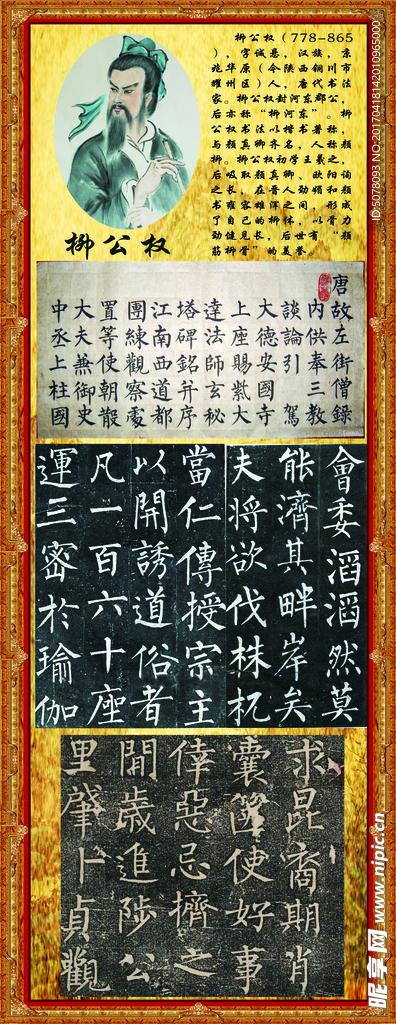 柳公权（778-865
），字诚悬，汉族，京
兆华原（今陕西铜川市
耀州区）人，唐代书法
家。柳公权封河东郡公，
后亦称“柳河东”。柳
公权书法以楷书著称，
与颜真卿齐名，人称颜
柳。柳公权初学王羲之，
后吸取颜真卿、欧阳询
之长，在晋人劲媚和颜
书雍容雄浑之间，形成
了自己的柳体，以骨力
劲健见长，后世有“颜
筋柳骨”的美誉。
柳公权
唐故左街僧録
内供奉三教
談論引駕
大德安國寺
上座賜紫大
達法師玄秘
塔碑銘并序
江南西道都
團練觀察處
置等使朝散
大夫兼御史
中丞上柱國
會委滔滔然莫
能濟其畔岸矣
夫將欲伐株杌
當仁傳授宗主
以開誘道俗者
凡一百六十座
運三密於瑜伽
求昆裔期肖
囊箧使好事
倖惡忌擠之
開歲進陟公
里肇卜貞觀
ID:5078093 NO:20170418142010965000
昵享网 www.nipic.cn